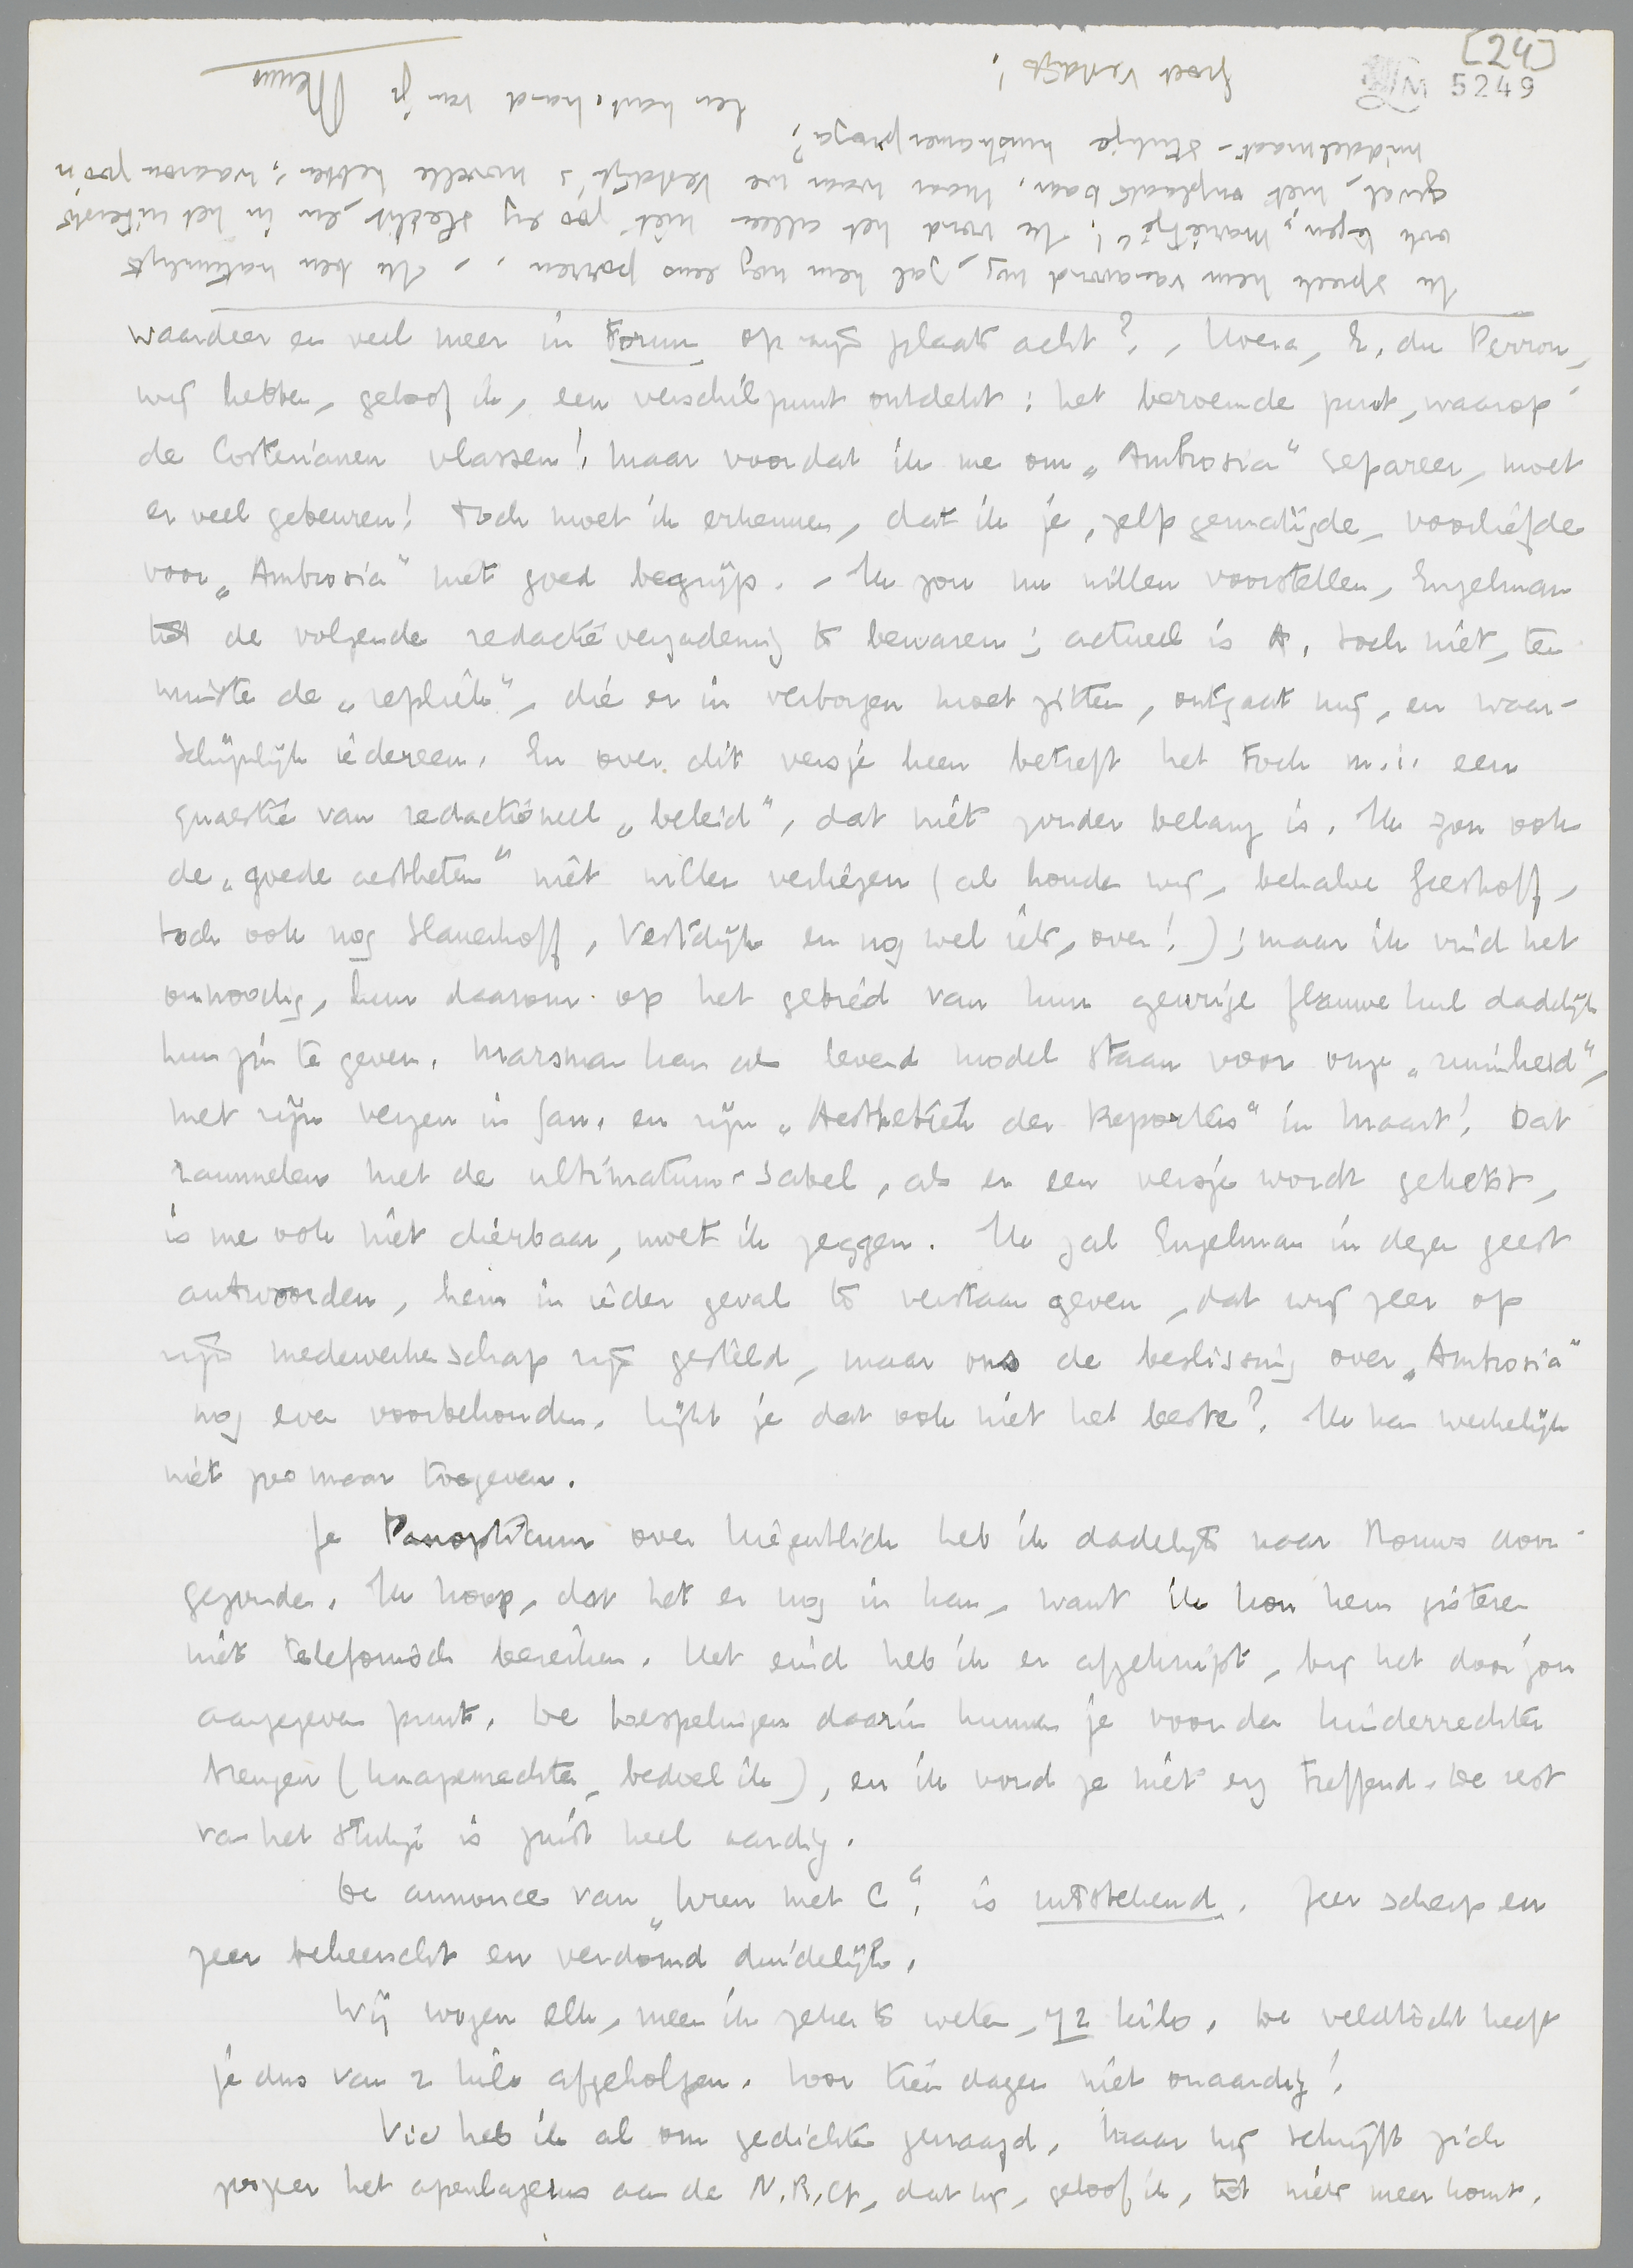 [24]
LM 5249
waardeer en veel meer in Forum op zijn plaats acht? , Hoera, E. du Perron,
wij hebben, geloof ik, een verschilpunt ontdekt: het beroemde punt, waarop
de Costerianen vlassen! Maar voordat ik me om „Ambrosia" separeer, moet
er veel gebeuren! Toch moet ik erkennen, dat ik je, zelfs gematigde, voorliefde
voor „Ambrosia" niet goed begrijp. - Ik zou nu willen voorstellen, Engelman
tot de volgende redactievergadering te bewaren; actueel is A. toch niet, ten
minste de „repliek", die er in verborgen moet zitten, ontgaat mij, en waar-
schijnlijk iedereen. En over dit versje heen betreft het toch m.i. een
quaestie van redactioneel „beleid", dat niet zonder belang is. Ik zou ook
de „goede aestheten" niet willen verliezen (al houden wij, behalve Greshoff,
toch ook nog Slauerhoff, Vestdijk en nog wel iets, over!); maar ik vind het
onnoodig, hun daarom op het gebied van hun flauwe kul dadelijk
hun zin te geven. Marsman kan als levend model staan voor onze „ruimheid",
met zijn verzen in Jan. en zijn „Aesthetiek der Reporters" in Maart! Dat
rammelen met de ultimatum-sabel, als er een versje wordt gekekst,
is me ook niet dierbaar, moet ik zeggen. Ik zal Engelman in dezen geest
antwoorden, hem in ieder geval te verstaan geven, dat wij zeer op
zijn medewerkerschap zijn gesteld, maar ons de beslissing over „Ambrosia"
nog even voorbehouden. Lijkt je dat ook niet het beste? Ik kan werkelijk
niet zoo maar toegeven.
Je Panopticum over Liegentlich heb ik dadelijk naar Nouws door-
gezonden. Ik hoop, dat het er nog in kan, want ik kon hem gisteren
niet telefonisch bereiken. Het eind heb ik er afgeknipt, bij het door jou
aangegeven punt. De toespelingen daarin kunnen je voor den kinderrechter
brengen (knapenrechter, bedoel ik), en ik vond ze niet erg treffend. De rest
van het stukje is juist heel aardig.
De annonce van „Uren met C." is uitstekend. Zeer scherp en
zeer beheerscht en verdomd duidelijk.
Wij wogen elk, meen ik zeker te weten, 72 kilo. De veldtocht heeft
je dus van 2 kilo afgeholpen. Voor tien dagen niet onaardig!
Vic heb ik al om gedichten gevraagd. Maar hij schrijft zich
zoozeer het apenlazerus aan de N.R.Ct., dat hij, geloof ik, tot niets meer komt.
Ik spreek hem vanavond nog, zal hem nog eens porren. - Ik ben natuurlijk
ook tegen „Marietje"! Ik vond het alleen niet zóó erg slecht, en in het uiterste
geval, niet onplaatsbaar. Maar waar we Vestdijk's novelle hebben, waarom zoo'n
middelmaat-stukje huiskamerproza?
Een hart. hand van je Menno
Groet Vestdijk!